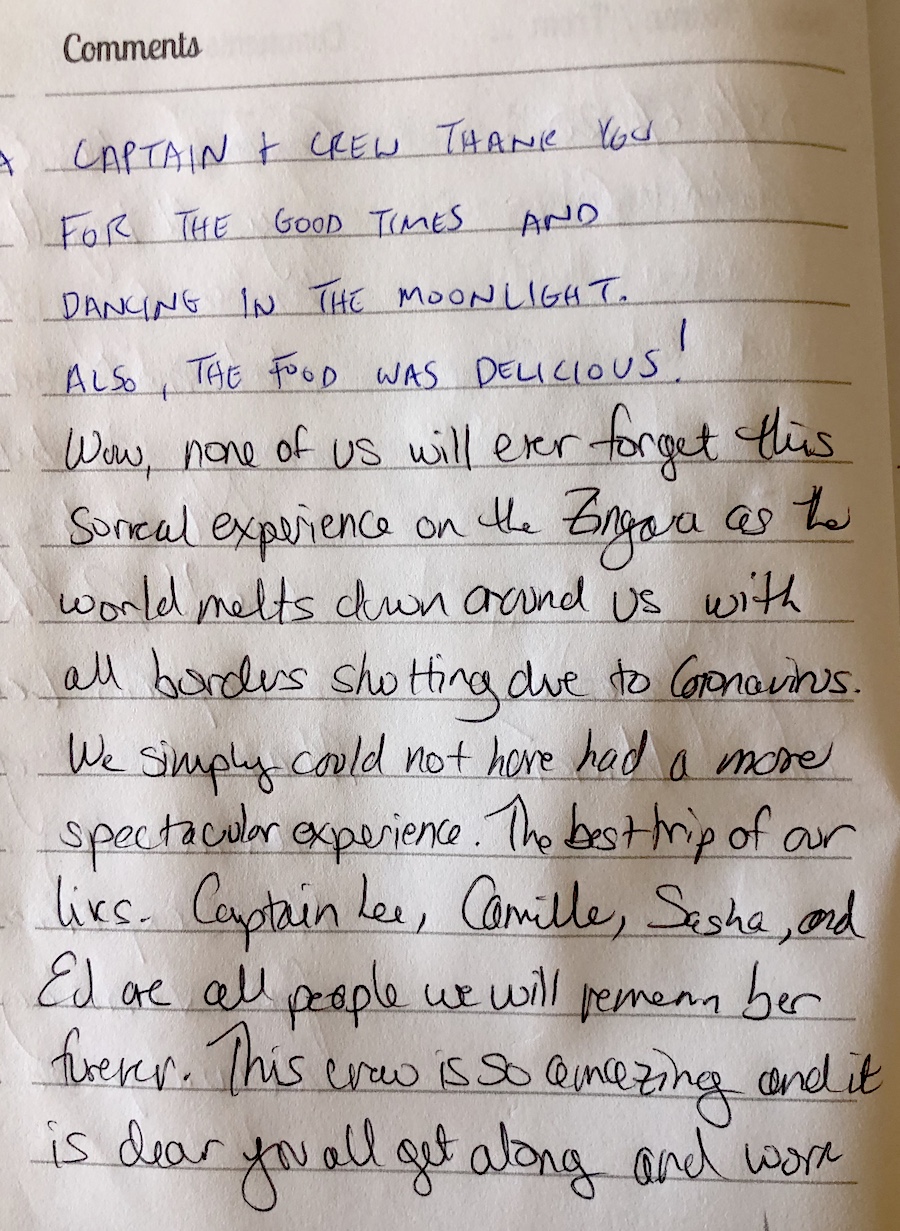 Comments
CAPTAIN + CREW THANK YOU
FOR THE GOOD TIMES AND
DANCING IN THE MOONLIGHT.
ALSO, THE FOOD WAS DELICIOUS!
Wow, none of us will ever forget this
Surreal experience on the Zingara as the
world melts down around us with
all borders shutting due to Coronavirus.
We simply could not have had a more
spectacular experience. The best trip of our
lives. Captain Lee, Camille, Sasha, and
Ed are all people we will remember
forever. This crew is so amazing and it
is clear you all get along and work